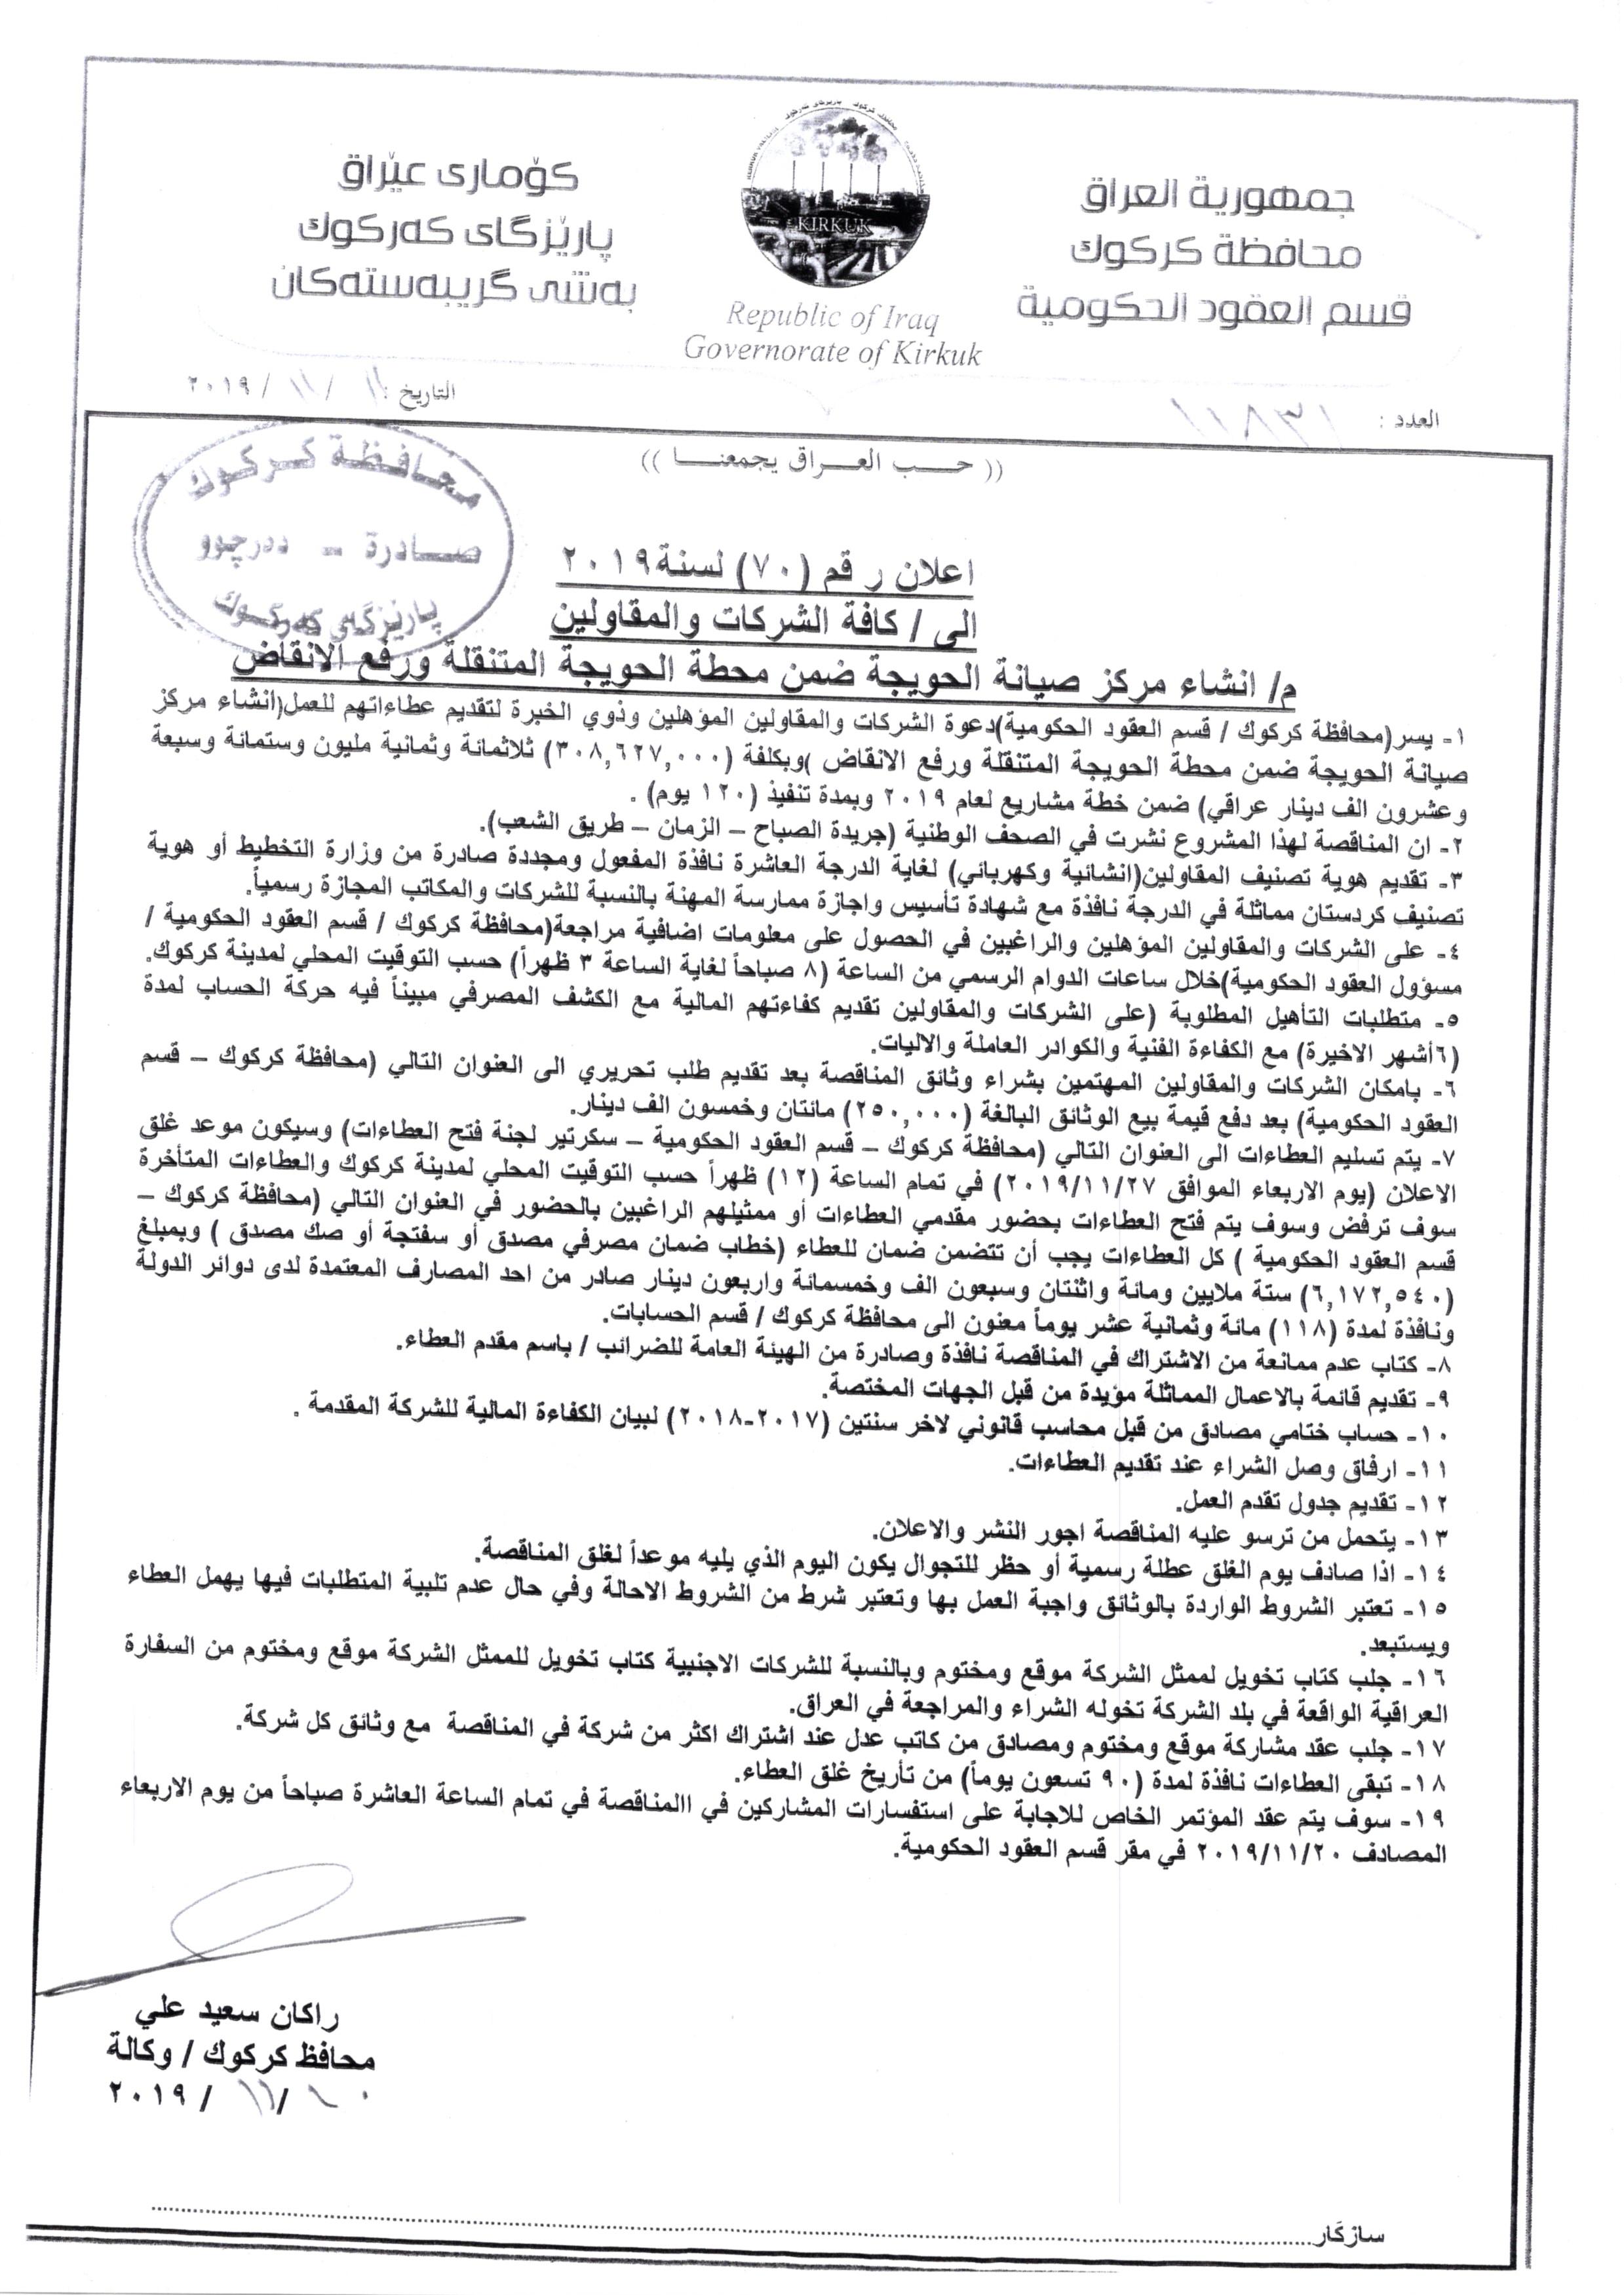 جمهورية العراق
محافظة كركوك
قسم العقود الحكومية
KIRKUK
Republic of Iraq
Governorate of Kirkuk
كۆماری عێراق
پارێزگای كەركوك
بەشی گریبەستەكان
العدد : ١١٨٣١
التاريخ : ١١ / ١١ / ٢٠١٩
(( حـــب العــــراق يجمعنــــا ))
محافظة كركوك
صادرة - دەرچوو
پارێزگای كەركوك
اعلان رقم (٧٠) لسنة٢٠١٩
الى / كافة الشركات والمقاولين
م/ انشاء مركز صيانة الحويجة ضمن محطة الحويجة المتنقلة ورفع الانقاض
١- يسر(محافظة كركوك / قسم العقود الحكومية)دعوة الشركات والمقاولين المؤهلين وذوي الخبرة لتقديم عطاءاتهم للعمل(انشاء مركز
صيانة الحويجة ضمن محطة الحويجة المتنقلة ورفع الانقاض )وبكلفة (٣٠٨,٦٢٧,٠٠٠) ثلاثمائة وثمانية مليون وستمائة وسبعة
وعشرون الف دينار عراقي) ضمن خطة مشاريع لعام ٢٠١٩ وبمدة تنفيذ (١٢٠ يوم) .
٢- ان المناقصة لهذا المشروع نشرت في الصحف الوطنية (جريدة الصباح – الزمان – طريق الشعب).
٣- تقديم هوية تصنيف المقاولين(انشائية وكهربائي) لغاية الدرجة العاشرة نافذة المفعول ومجددة صادرة من وزارة التخطيط أو هوية
تصنيف كردستان مماثلة في الدرجة نافذة مع شهادة تأسيس واجازة ممارسة المهنة بالنسبة للشركات والمكاتب المجازة رسمياً.
٤- على الشركات والمقاولين المؤهلين والراغبين في الحصول على معلومات اضافية مراجعة(محافظة كركوك / قسم العقود الحكومية /
مسؤول العقود الحكومية)خلال ساعات الدوام الرسمي من الساعة (٨ صباحاً لغاية الساعة ٣ ظهراً) حسب التوقيت المحلي لمدينة كركوك.
٥- متطلبات التأهيل المطلوبة (على الشركات والمقاولين تقديم كفاءتهم المالية مع الكشف المصرفي مبيناً فيه حركة الحساب لمدة
(٦أشهر الاخيرة) مع الكفاءة الفنية والكوادر العاملة والاليات.
٦- بامكان الشركات والمقاولين المهتمين بشراء وثائق المناقصة بعد تقديم طلب تحريري الى العنوان التالي (محافظة كركوك – قسم
العقود الحكومية) بعد دفع قيمة بيع الوثائق البالغة (٢٥٠,٠٠٠) مائتان وخمسون الف دينار.
٧- يتم تسليم العطاءات الى العنوان التالي (محافظة كركوك – قسم العقود الحكومية – سكرتير لجنة فتح العطاءات) وسيكون موعد غلق
الاعلان (يوم الاربعاء الموافق ٢٠١٩/١١/٢٧) في تمام الساعة (١٢) ظهراً حسب التوقيت المحلي لمدينة كركوك والعطاءات المتأخرة
سوف ترفض وسوف يتم فتح العطاءات بحضور مقدمي العطاءات أو ممثيلهم الراغبين بالحضور في العنوان التالي (محافظة كركوك –
قسم العقود الحكومية ) كل العطاءات يجب أن تتضمن ضمان للعطاء (خطاب ضمان مصرفي مصدق أو سفتجة أو صك مصدق ) وبمبلغ
(٦,١٧٢,٥٤٠) ستة ملايين ومائة واثنتان وسبعون الف وخمسمائة واربعون دينار صادر من احد المصارف المعتمدة لدى دوائر الدولة
ونافذة لمدة (١١٨) مائة وثمانية عشر يوماً معنون الى محافظة كركوك / قسم الحسابات.
٨- كتاب عدم ممانعة من الاشتراك في المناقصة نافذة وصادرة من الهيئة العامة للضرائب / باسم مقدم العطاء.
٩- تقديم قائمة بالاعمال المماثلة مؤيدة من قبل الجهات المختصة.
١٠- حساب ختامي مصادق من قبل محاسب قانوني لاخر سنتين (٢٠١٧-٢٠١٨) لبيان الكفاءة المالية للشركة المقدمة .
١١- ارفاق وصل الشراء عند تقديم العطاءات.
١٢- تقديم جدول تقدم العمل.
١٣- يتحمل من ترسو عليه المناقصة اجور النشر والاعلان.
١٤- اذا صادف يوم الغلق عطلة رسمية أو حظر للتجوال يكون اليوم الذي يليه موعداً لغلق المناقصة.
١٥- تعتبر الشروط الواردة بالوثائق واجبة العمل بها وتعتبر شرط من الشروط الاحالة وفي حال عدم تلبية المتطلبات فيها يهمل العطاء
ويستبعد.
١٦- جلب كتاب تخويل لممثل الشركة موقع ومختوم وبالنسبة للشركات الاجنبية كتاب تخويل للممثل الشركة موقع ومختوم من السفارة
العراقية الواقعة في بلد الشركة تخوله الشراء والمراجعة في العراق.
١٧- جلب عقد مشاركة موقع ومختوم ومصادق من كاتب عدل عند اشتراك اكثر من شركة في المناقصة مع وثائق كل شركة.
١٨- تبقى العطاءات نافذة لمدة (٩٠ تسعون يوماً) من تأريخ غلق العطاء.
١٩- سوف يتم عقد المؤتمر الخاص للاجابة على استفسارات المشاركين في االمناقصة في تمام الساعة العاشرة صباحاً من يوم الاربعاء
المصادف ٢٠١٩/١١/٢٠ في مقر قسم العقود الحكومية.
راكان سعيد علي
محافظ كركوك / وكالة
١٠ / ١١ / ٢٠١٩
سازگار